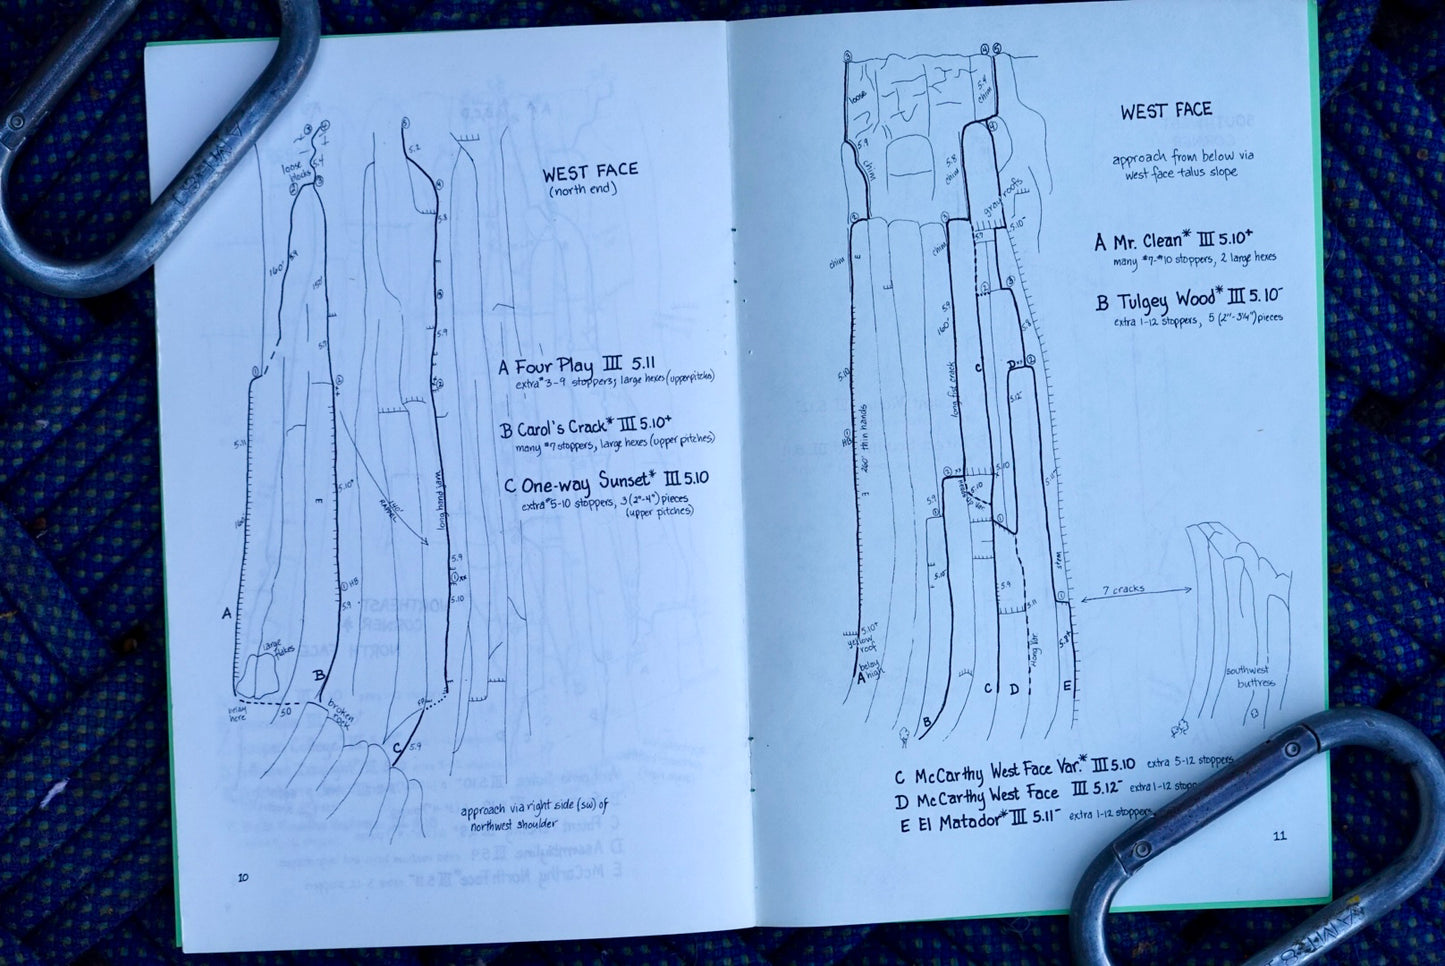 loose
blocks
5.4
160'
5.9
150'
5.9
5.11
160'
5.10+
HB
5.9
A
large
flakes
B
belay
here
5.0
broken
rock
150'
RAPPEL
5.2
5.8
5.9
long hand jam
5.9
5.10
5.9
C
5.9
WEST FACE
(north end)
A Four Play III 5.11
extra #3-9 stoppers; large hexes (upper pitches)
B Carol's Crack* III 5.10+
many #7 stoppers, large hexes (upper pitches)
C One-way Sunset* III 5.10
extra #5-10 stoppers, 3 (2"-4") pieces
(upper pitches)
approach via right side (SW) of
northwest shoulder
10
loose
5.9
chim
chim
5.10
260' thin hands
5.10+
yellow
roof
belay
high
A
5.9
chim
5.8
chim
gray roofs
5.10-
chim
5.7
5.9
160'
long fist crack
C
5.8
D
5.12-
5.11-
5.10
5.10
5.9
5.10
5.9
5.11
stem
B
C
D
E
7 cracks
southwest
buttress
WEST FACE
approach from below via
west face talus slope
A Mr. Clean* III 5.10+
many #7-#10 stoppers, 2 large hexes
B Tulgey Wood* III 5.10-
extra 1-12 stoppers, 5 (2"-3¼") pieces
C McCarthy West Face Var.* III 5.10 extra 5-12 stoppers
D McCarthy West Face III 5.12- extra 1-12 stopp
E El Matador* III 5.11- extra 1-12 stoppers
11